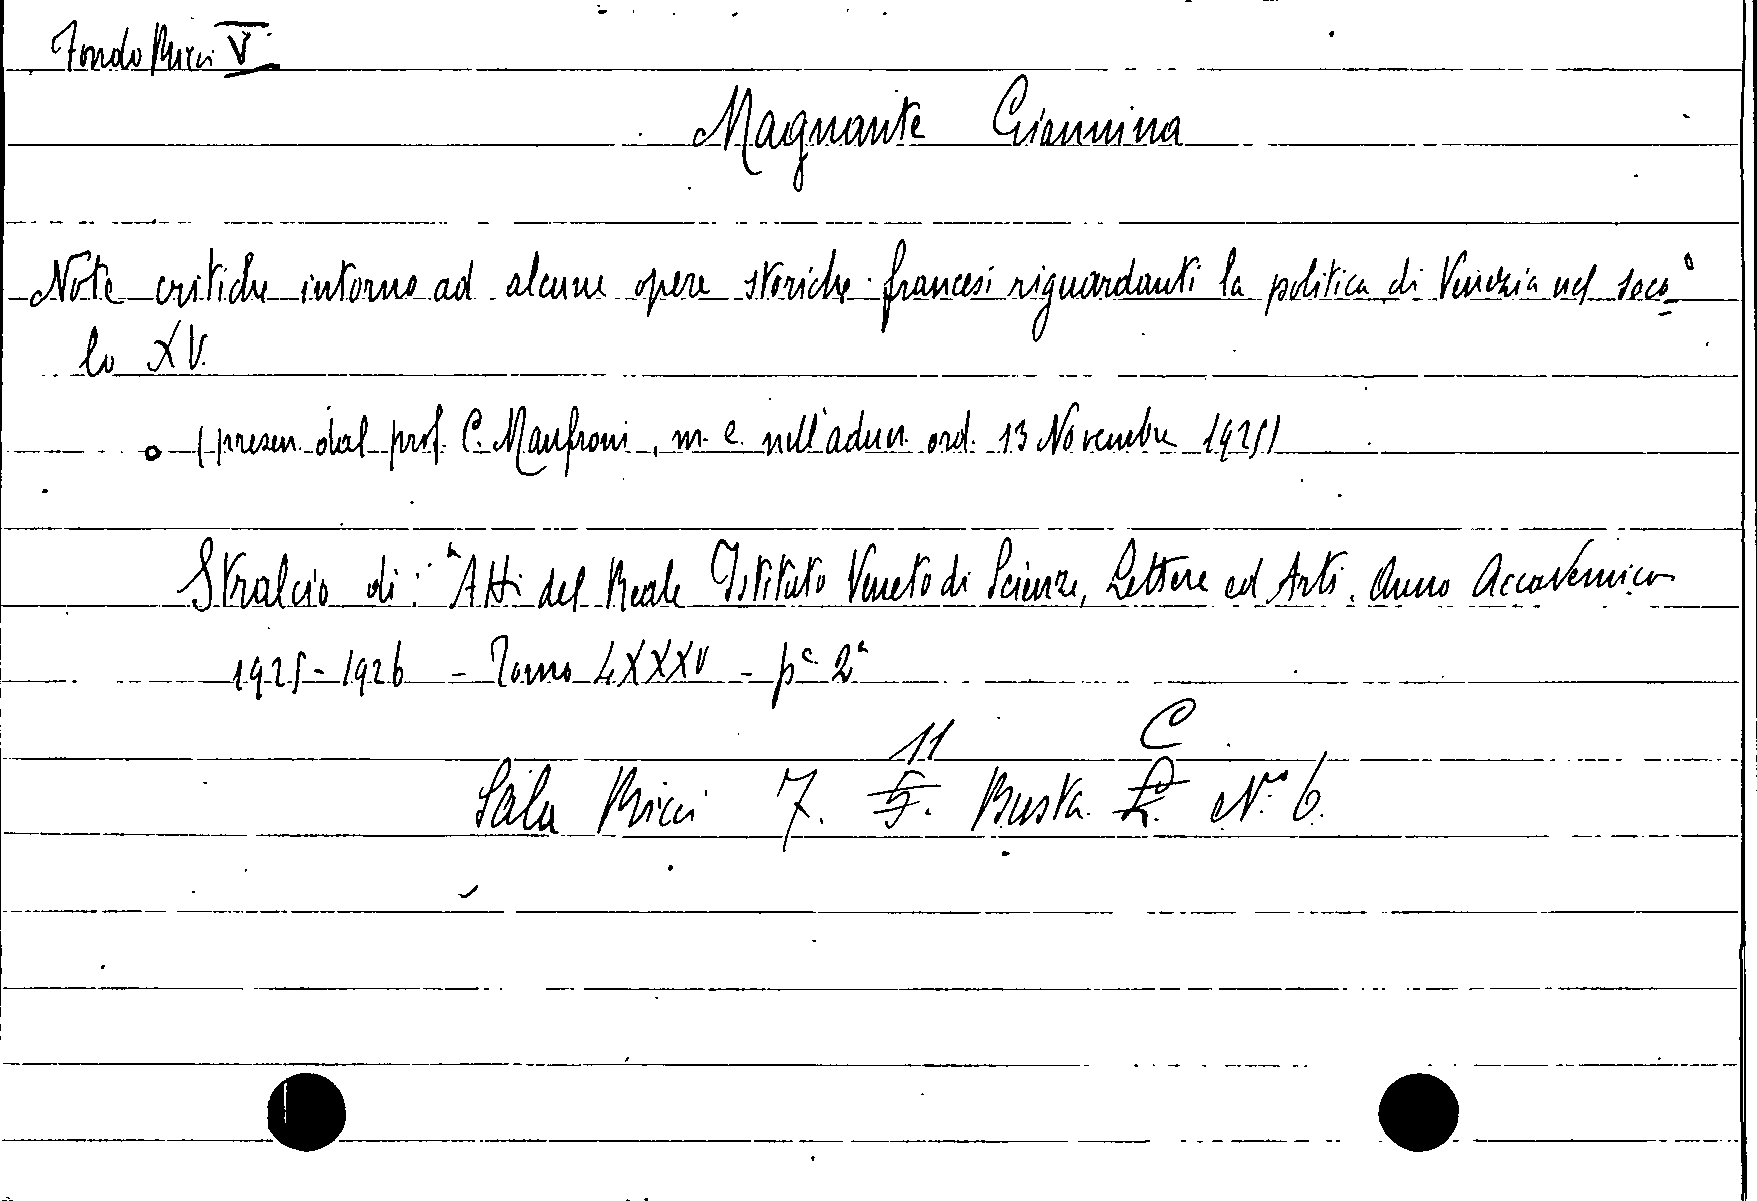 Fondo Ricci V
Magnante Giannina
Note critiche intorno ad alcune opere storiche francesi riguardanti la politica di Venezia nel seco-
lo XV.
(presen. dal prof. C. Manfroni, m. e. nell'adun. ord. 13 Novembre 1925)
Stralcio di: "Atti del Reale Istituto Veneto di Scienze, Lettere ed Arti. Anno Accademico
1925-1926 - Tomo LXXXV - pe 2a
11 C
Sala Ricci 7. 5. Busta L. No 6.